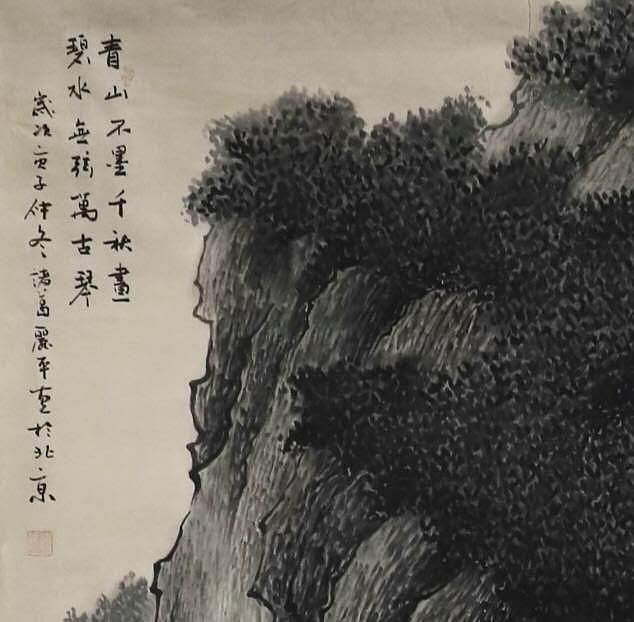 青山不墨千秋畫
碧水無弦萬古琴
歲次庚子仲冬諸葛麗平画於北京